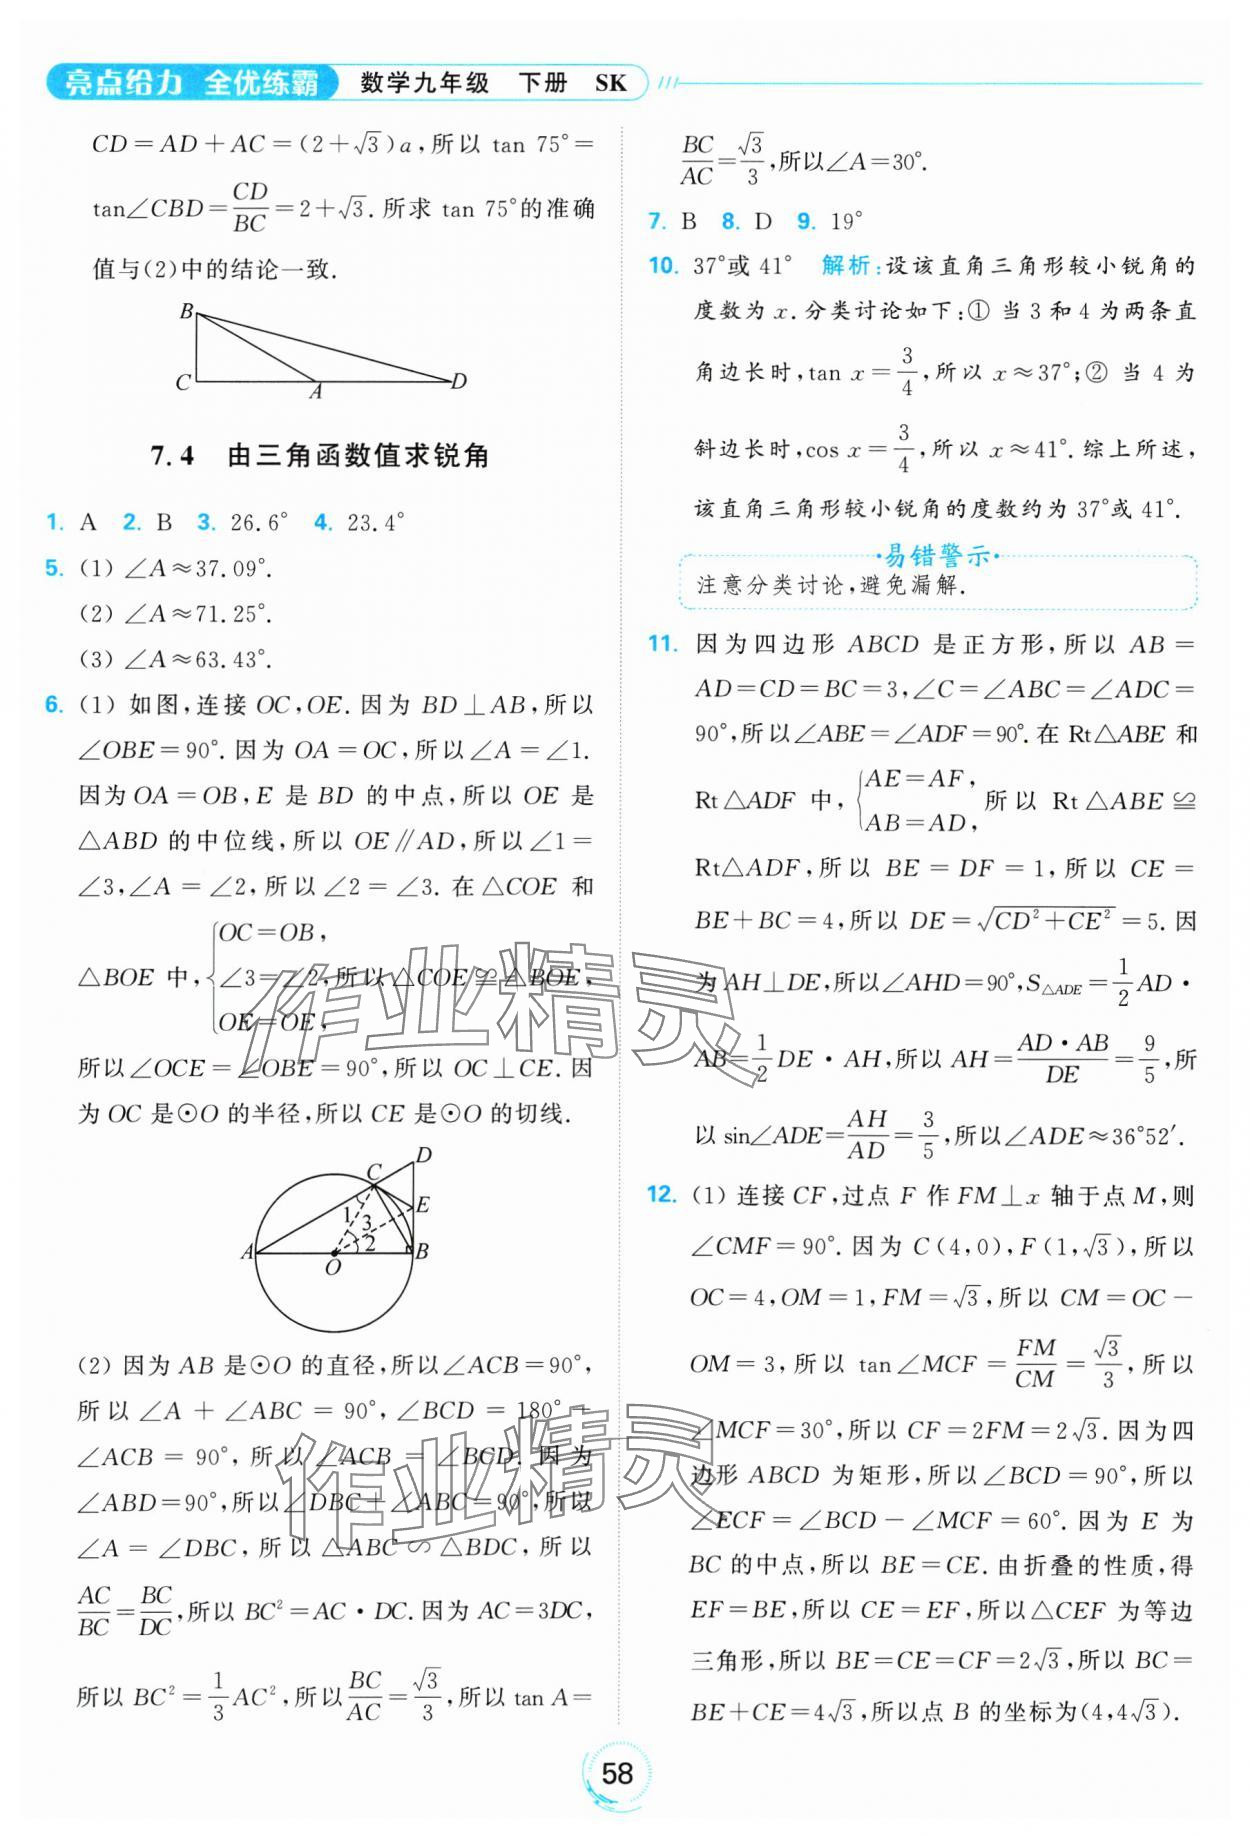 亮点给力 全优练霸 数学九年级 下册 SK
CD=AD+AC=(2+√3)a,所以 tan 75°=
tan∠CBD=CD/BC=2+√3.所求 tan 75°的准确
值与(2)中的结论一致.
B
C
A
D
7.4 由三角函数值求锐角
1. A 2. B 3. 26.6° 4. 23.4°
5. (1) ∠A≈37.09°.
(2) ∠A≈71.25°.
(3) ∠A≈63.43°.
6. (1) 如图,连接 OC,OE.因为 BD⊥AB,所以
∠OBE=90°.因为 OA=OC,所以∠A=∠1.
因为OA=OB,E 是 BD 的中点,所以 OE 是
△ABD 的中位线,所以 OE∥AD,所以∠1=
∠3,∠A=∠2,所以∠2=∠3.在△COE 和
△BOE 中,{OC=OB,
∠3=∠2,所以△COE≌△BOE,
OE=OE,
所以∠OCE=∠OBE=90°,所以 OC⊥CE.因
为 OC 是⊙O 的半径,所以 CE 是⊙O 的切线.
D
C
E
1
3
2
A
O
B
(2) 因为 AB 是⊙O 的直径,所以∠ACB=90°,
所以∠A+∠ABC=90°,∠BCD=180°-
∠ACB=90°,所以∠ACB=∠BCD.因为
∠ABD=90°,所以∠DBC+∠ABC=90°,所以
∠A=∠DBC,所以△ABC∽△BDC,所以
AC/BC=BC/DC,所以 BC²=AC·DC.因为 AC=3DC,
所以 BC²=1/3AC²,所以BC/AC=√3/3,所以 tan A=
BC/AC=√3/3,所以∠A=30°.
7. B 8. D 9. 19°
10. 37°或 41° 解析:设该直角三角形较小锐角的
度数为 x.分类讨论如下:① 当 3 和 4 为两条直
角边长时,tan x=3/4,所以 x≈37°;② 当 4 为
斜边长时,cos x=3/4,所以 x≈41°.综上所述,
该直角三角形较小锐角的度数约为 37°或 41°.
·易错警示·
注意分类讨论,避免漏解.
11. 因为四边形 ABCD 是正方形,所以 AB=
AD=CD=BC=3,∠C=∠ABC=∠ADC=
90°,所以∠ABE=∠ADF=90°.在 Rt△ABE 和
Rt△ADF 中,{AE=AF,
AB=AD,所以 Rt△ABE≌
Rt△ADF,所以 BE=DF=1,所以 CE=
BE+BC=4,所以 DE=√(CD²+CE²)=5.因
为 AH⊥DE,所以∠AHD=90°,S△ADE=1/2AD·
AB=1/2DE·AH,所以 AH=AD·AB/DE=9/5,所
以 sin∠ADE=AH/AD=3/5,所以∠ADE≈36°52′.
12. (1) 连接 CF,过点 F 作 FM⊥x 轴于点 M,则
∠CMF=90°.因为 C(4,0),F(1,√3),所以
OC=4,OM=1,FM=√3,所以 CM=OC-
OM=3,所以 tan∠MCF=FM/CM=√3/3,所以
∠MCF=30°,所以 CF=2FM=2√3.因为四
边形 ABCD 为矩形,所以∠BCD=90°,所以
∠ECF=∠BCD-∠MCF=60°.因为 E 为
BC 的中点,所以 BE=CE.由折叠的性质,得
EF=BE,所以 CE=EF,所以△CEF 为等边
三角形,所以 BE=CE=CF=2√3,所以 BC=
BE+CE=4√3,所以点 B 的坐标为(4,4√3).
作业精灵
作业精灵
58